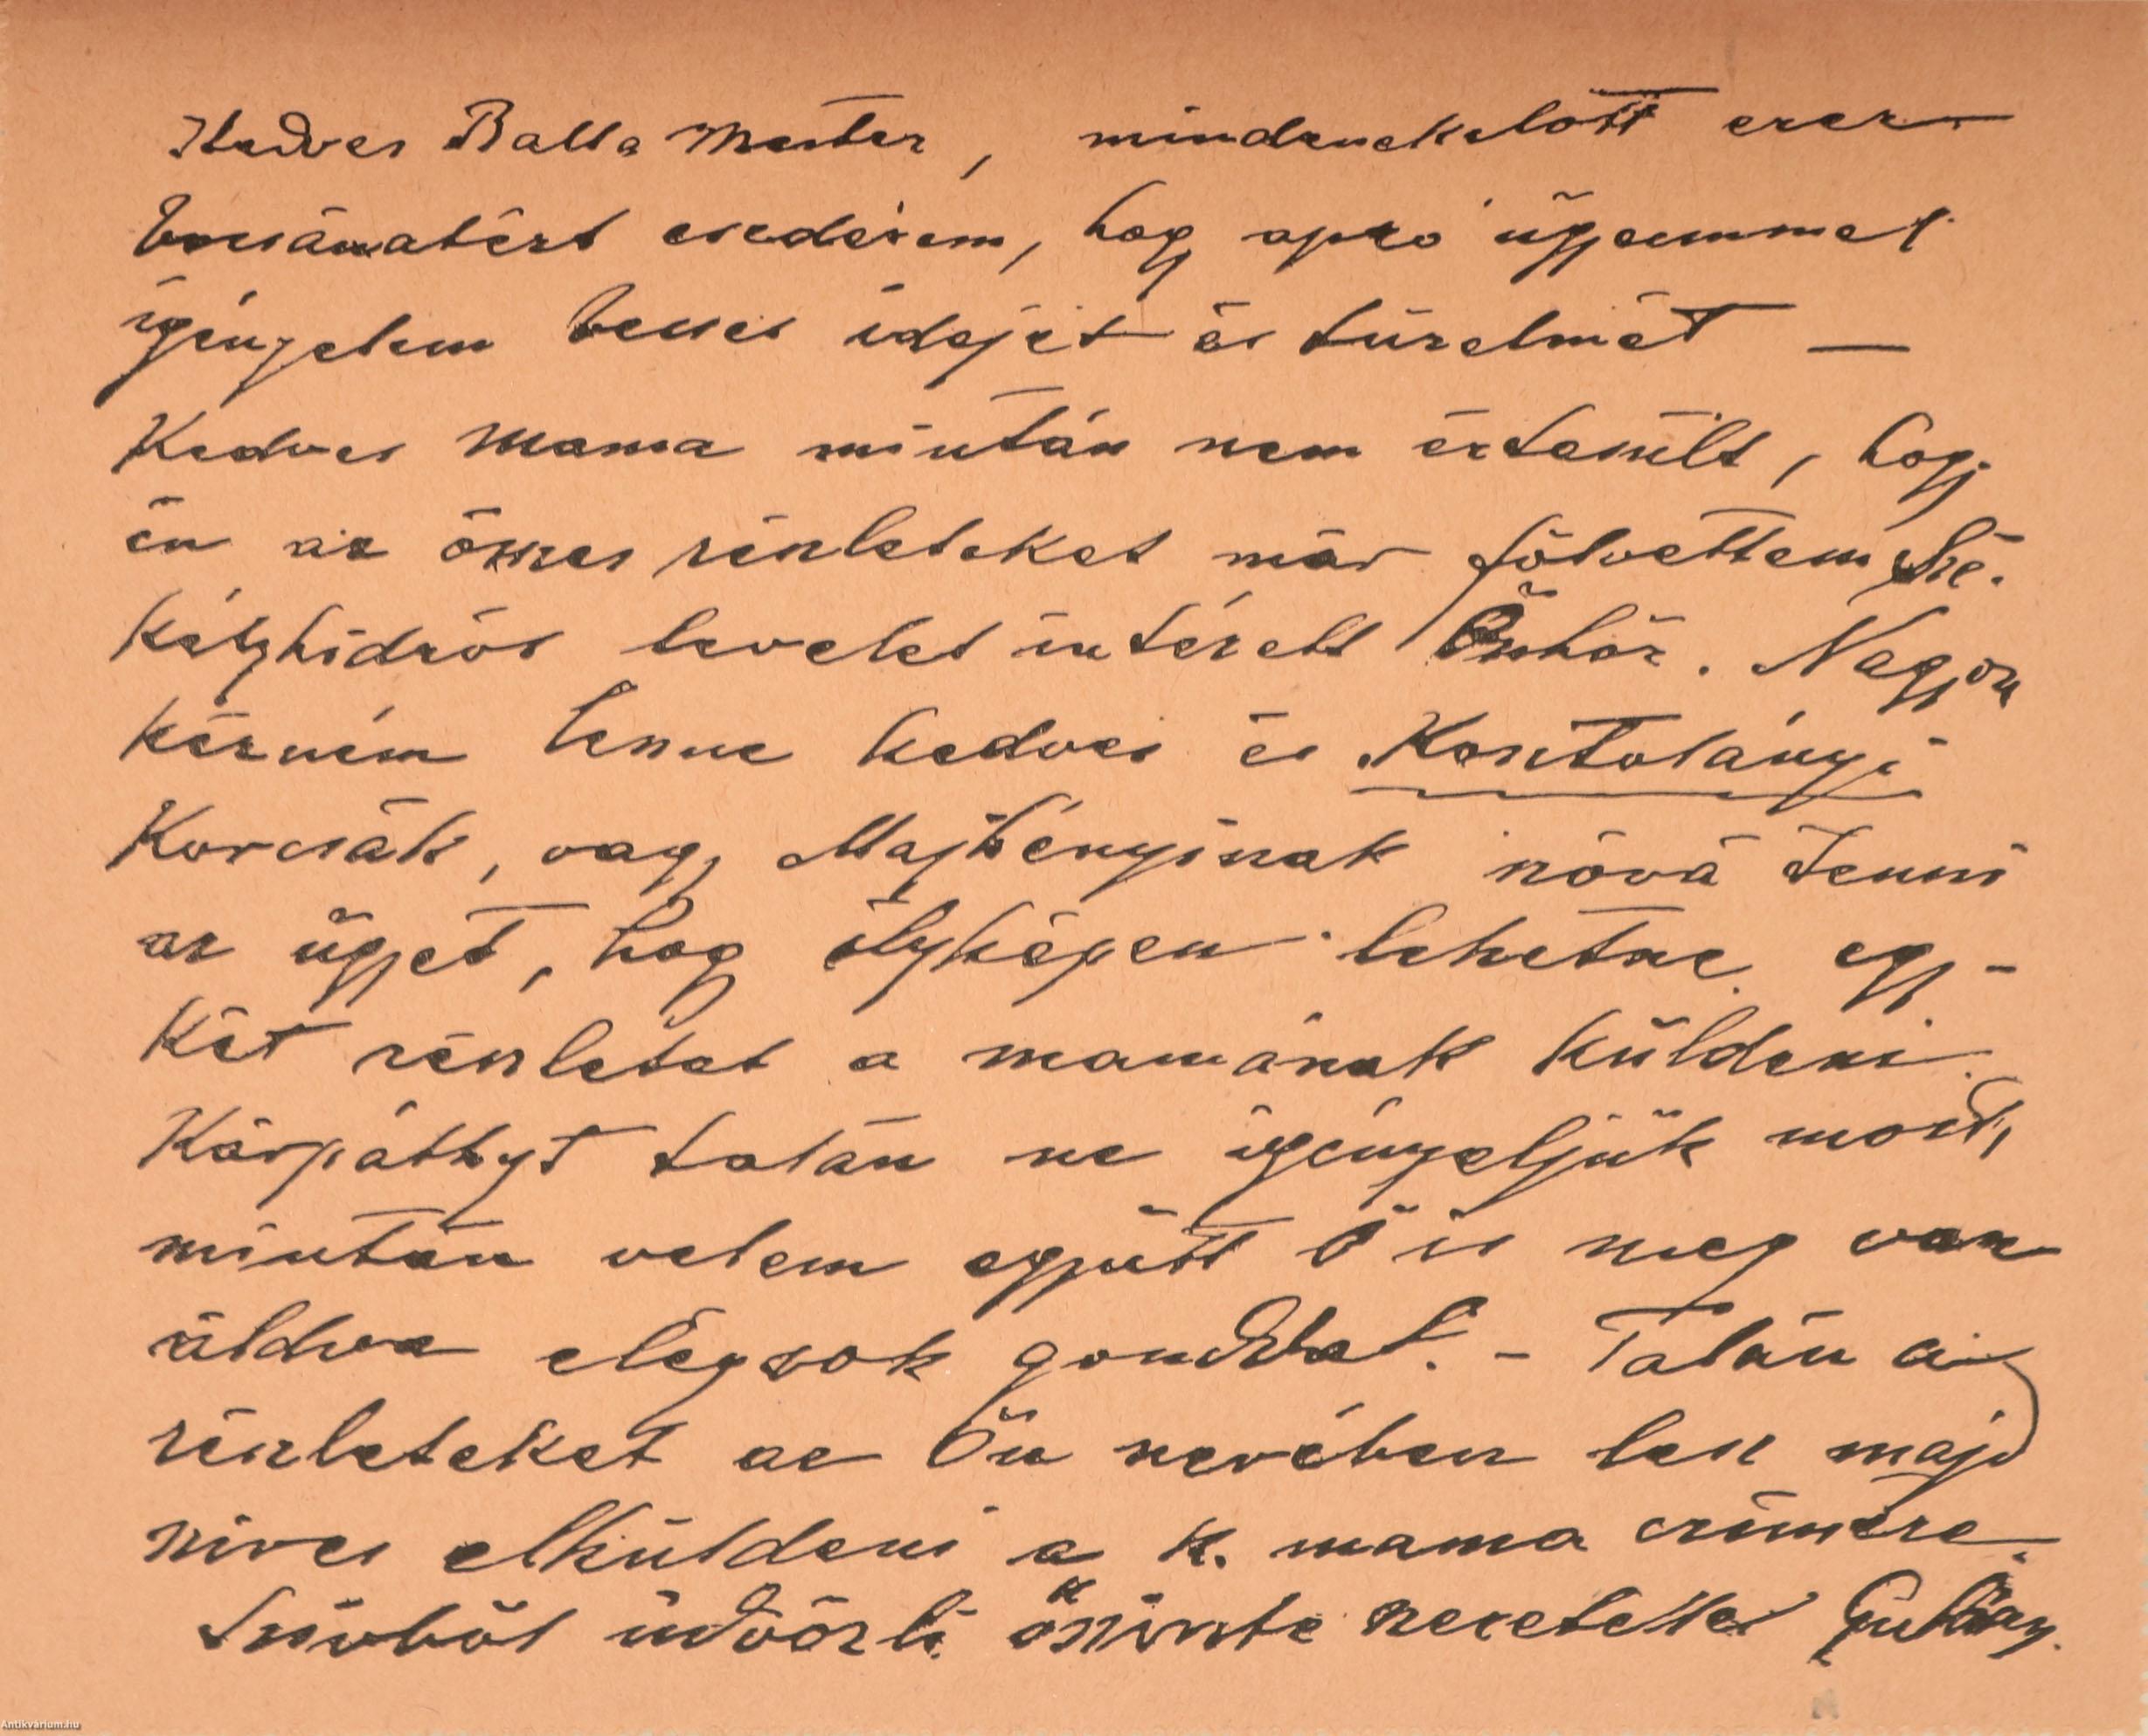 Kedves Balla Mester, mindenekelőtt ezer
bocsánatért esedezem, hog apró ügyeimmel
igényelem becses idejét és türelmét —
Kedves Mama miután nem értesült, hogy
én az összes részleteket már fölvettem
levelet intézett Önhöz. Nagyon
kérném lenne kedves és Kosztolányi
vagy Majthényinak szóvá tenni
az ügyet, hog ilyképen lehetne egy-
két részletet a mamának küldeni.
Kárpáthyt talán ne igényeljük most,
miután velem együtt Ő is meg van
áldva elég sok gonddal. – Talán a
részleteket az Ön nevében lesz majd
szives elküldeni a k. mama czimére.
Szivből üdvözli őszinte szeretettel Gulácsy.
Antikvárium.hu